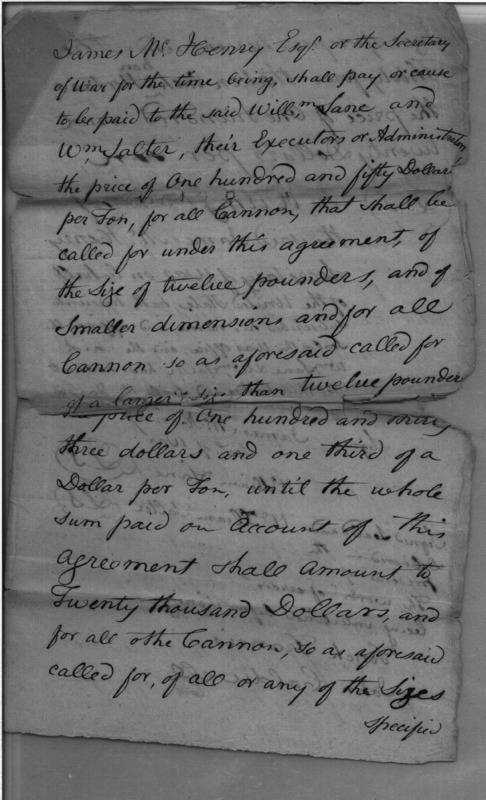 James Mc. Henry Esqr. or the Secretary
of War for the time being, shall pay or cause
to be paid to the said Willm. Lane and
Wm. Salter, their Executors or Administrators,
the price of One hundred and fifty Dollars
per Ton, for all Cannon, that shall be
called for under this agreement, of
the size of twelve pounders, and of
Smaller dimensions and for all
Cannon so as aforesaid called for
of a larger size than twelve pounders
price of One hundred and thirty
three dollars and one third of a
Dollar per Ton, until the whole
sum paid on Account of this
Agreement shall amount to
Twenty thousand Dollars, and
for all othe Cannon, so as aforesaid
called for, of all or any of the Sizes
specified